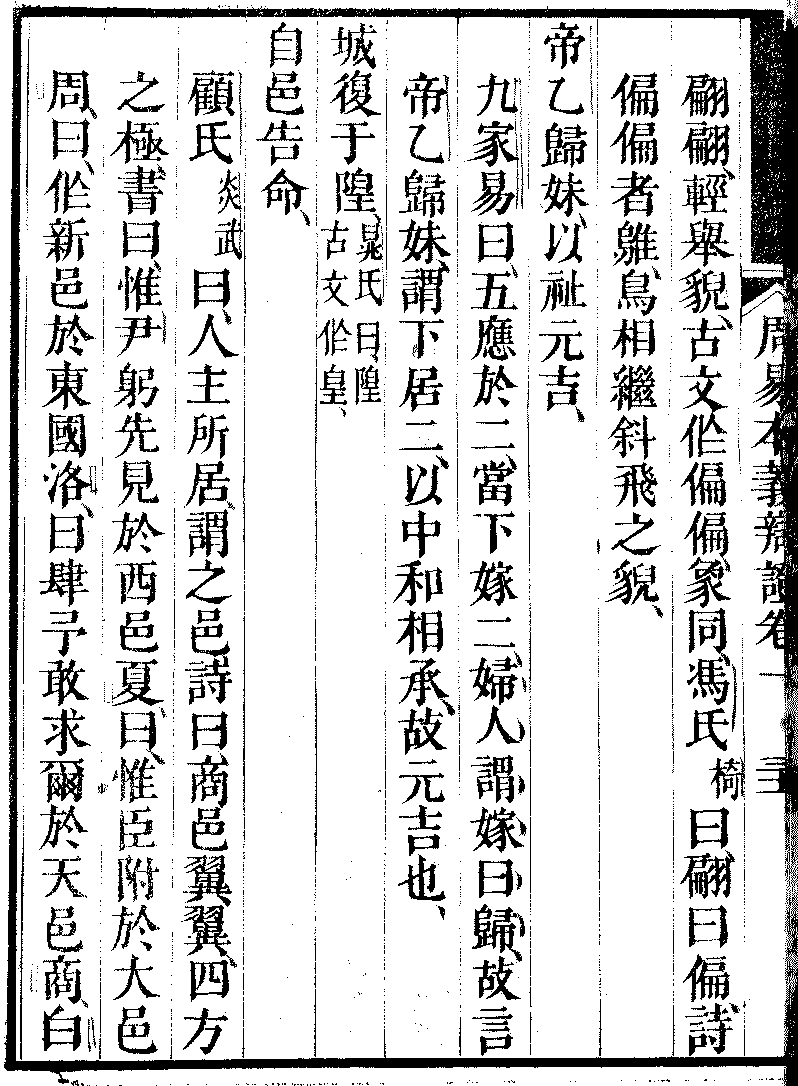 周易本義辯證卷一
翩翩、輕舉貌、古文作偏偏、象同、馮氏椅曰、翩曰偏、詩
偏偏者鵻、鳥相繼斜飛之貌、
帝乙歸妹、以祉元吉、
九家易曰、五應於二、當下嫁二、婦人謂嫁曰歸、故言
帝乙歸妹、謂下居二、以中和相承、故元吉也、
城復于隍、晁氏曰、隍古文作皇、
自邑告命、
顧氏炎武曰、人主所居、謂之邑、詩曰、商邑翼翼、四方
之極、書曰、惟尹躬先見於西邑夏、曰、惟臣附於大邑
周、曰、作新邑於東國洛、曰肆予敢求爾於天邑商、白